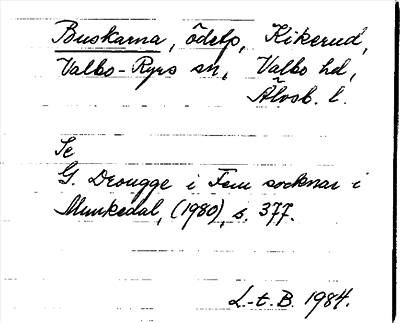 Buskarna, ödetp, Kikerud,
Valbo-Ryrs sn, Valbo hd,
Älvsb. l.
Se
G. Drougge i Fem socknar i
Munkedal, (1980), s. 377.
L-t. B. 1984.